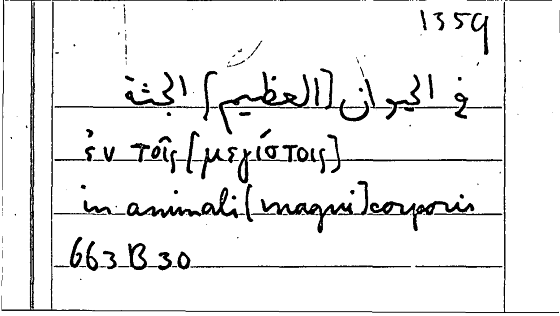 1359
في الحيوان [العظيم] الجثة
ἐν τοῖς [μεγίστοις]
in animali [magni] corporis
663 B 30